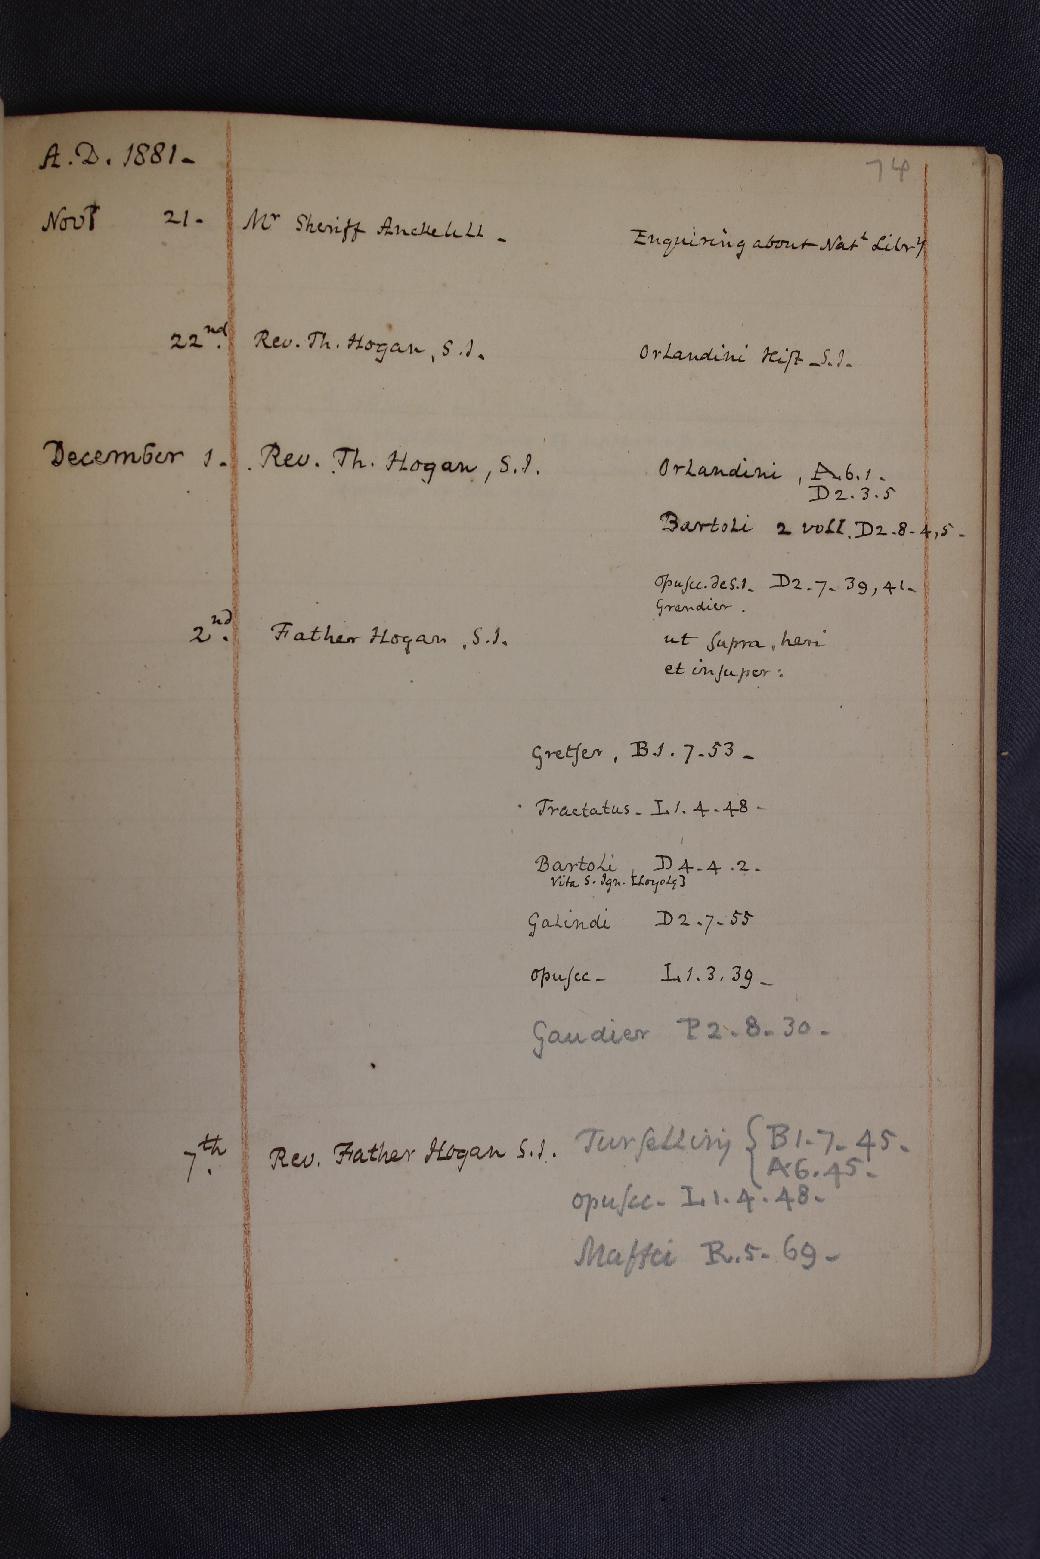 A.D. 1881-
74
Novr 21- Mr Sheriff Anckelill - Enquiring about Natl Libry
22nd. Rev. Th. Hogan, S.J. Orlandini Hist - S.J.
December 1. Rev. Th. Hogan, S.J. Orlandini, A.6.1.
D2.3.5
Bartoli 2 voll. D2-8-4,5-
Opusc. de S.J. D2-7-39,41-
Grandier.
2nd. Father Hogan, S.J. ut supra, heri
et insuper:
Gretser, B.1.7-53-
Tractatus- L1.4-48-
Bartoli, D4-4.2-
Vita S. Ign. [Loyolæ]
Galindi D2-7-55
Opusc- L.1.3.39-
Gaudier P2-8-30-
7th. Rev. Father Hogan S.J. Tursellinj { B1-7-45-
A6.45-
Opusc- L1.4.48-
Maffei R.5-69-